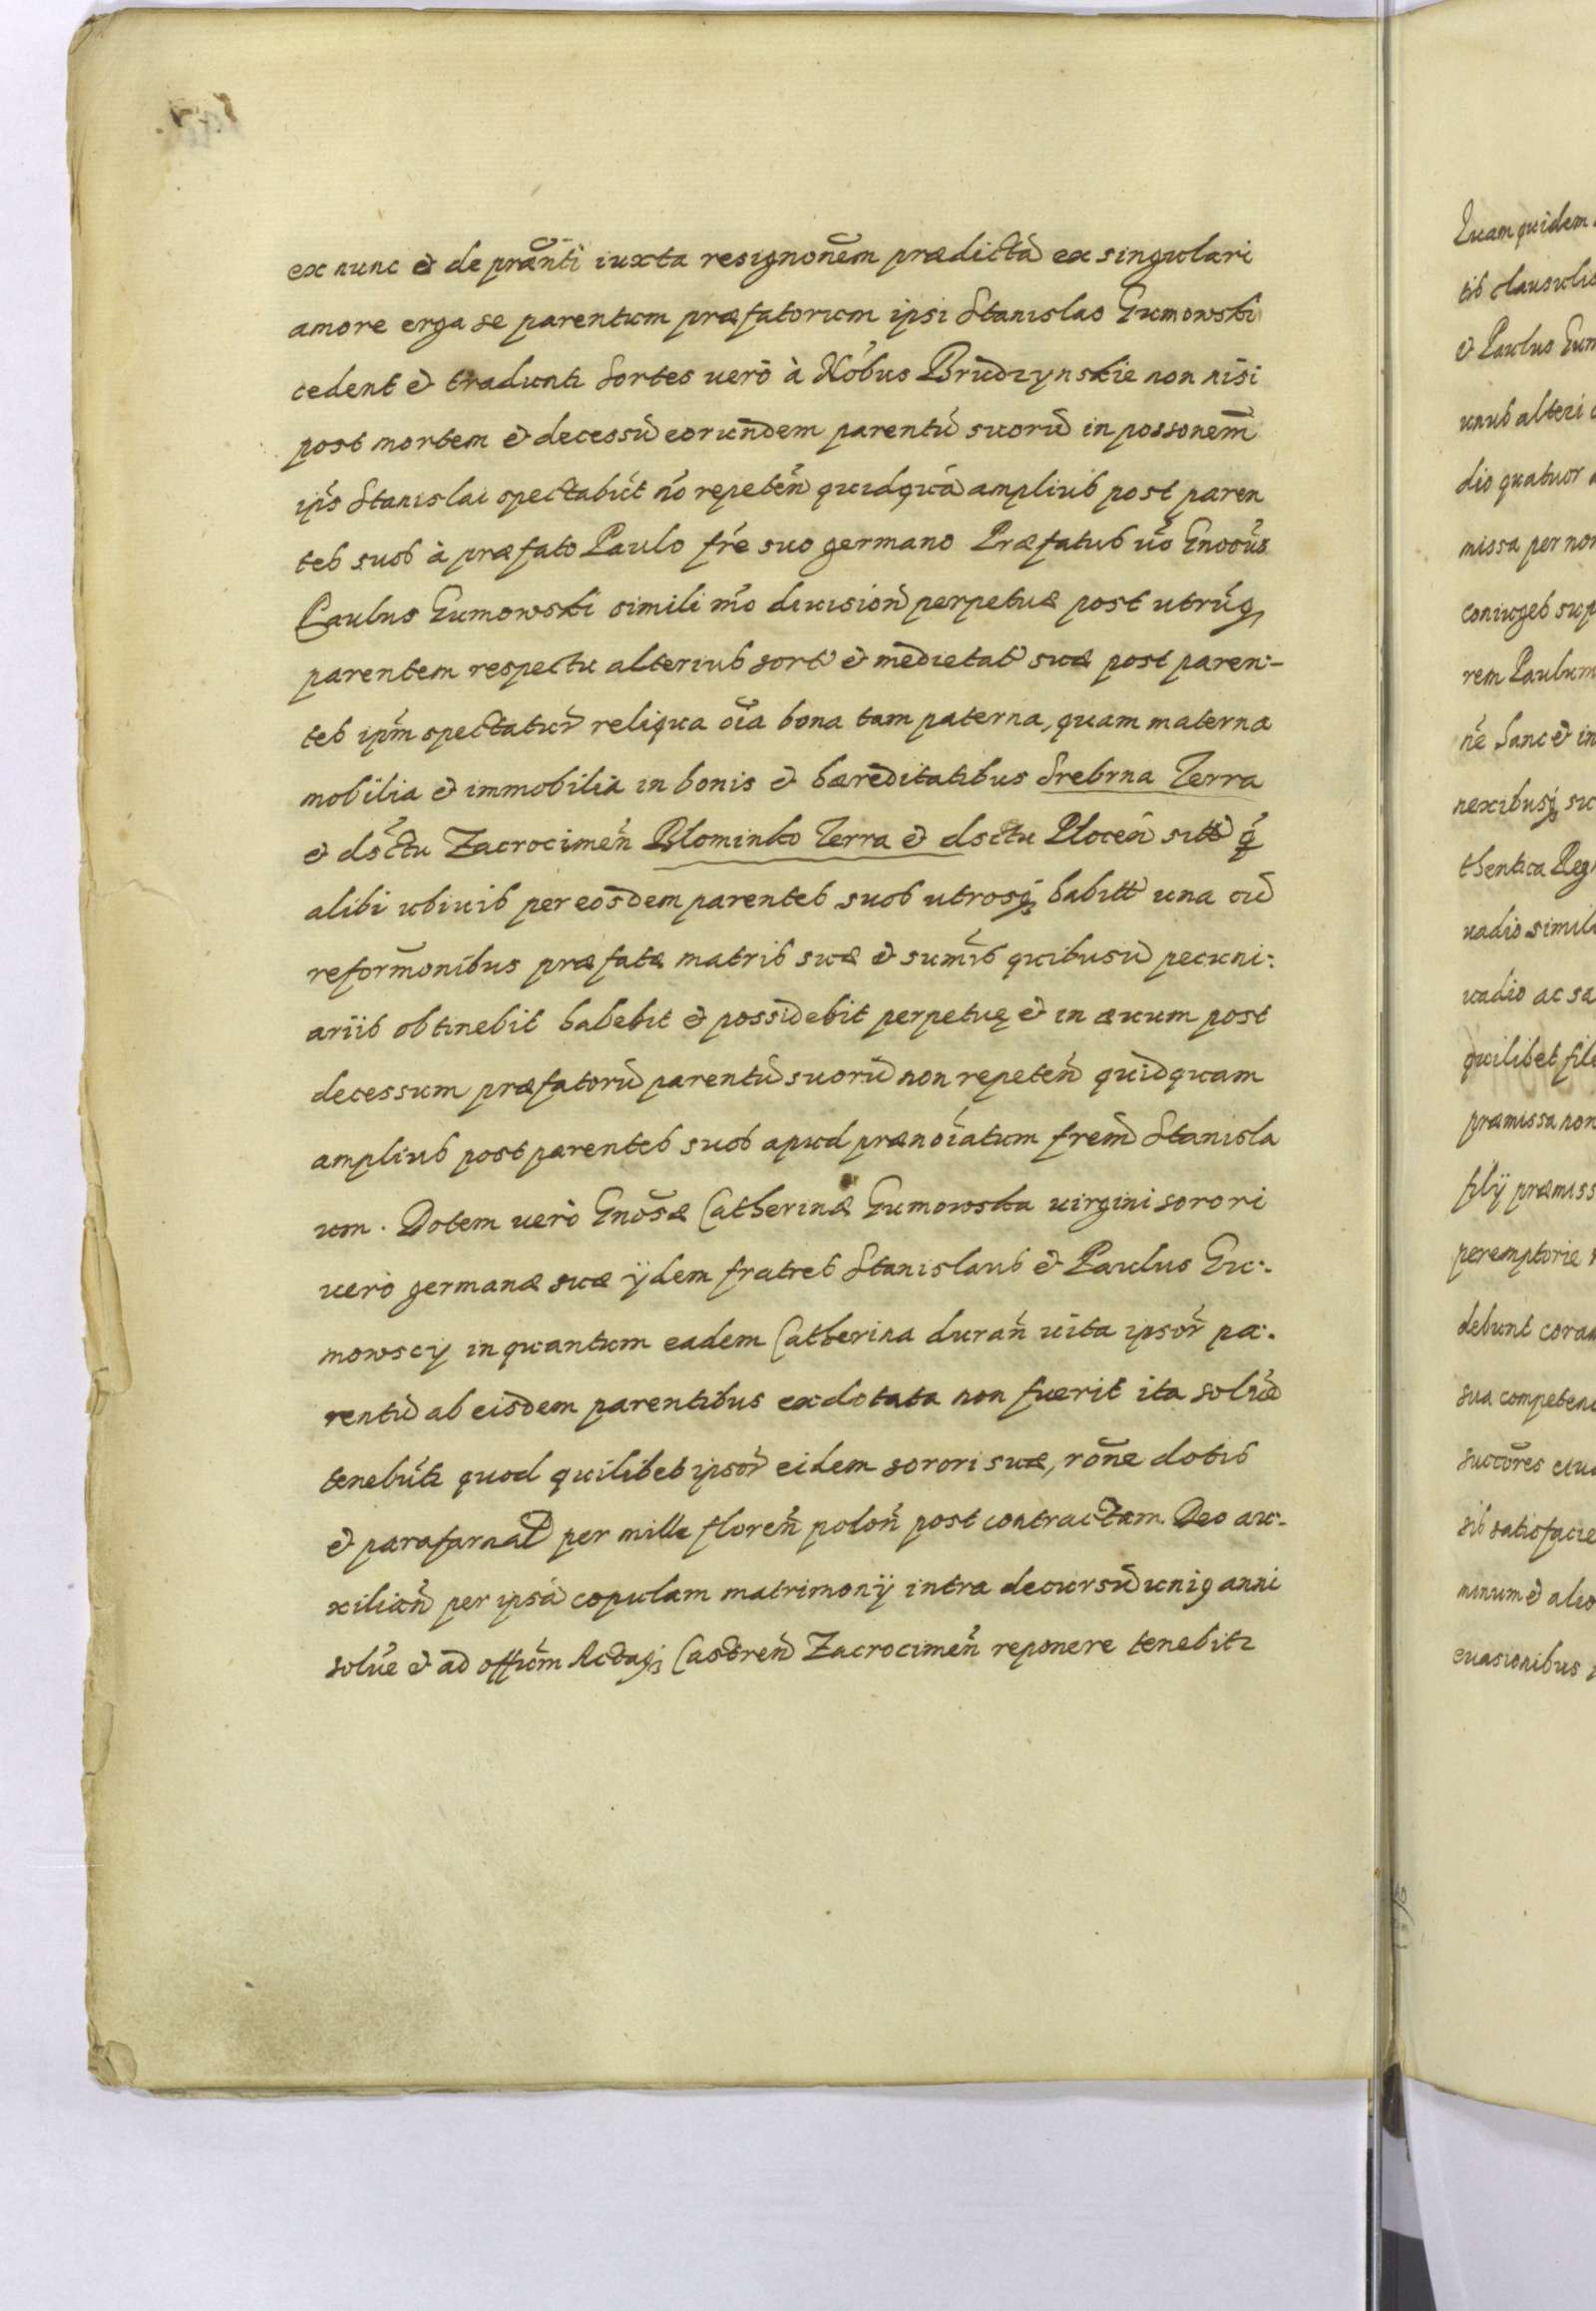 ex nunc et de pränti iuxta resignonem prædictã ex singulari
amore erga se parentum præfatorum ipsi Stanislao Gumowski
cedent et tradunt. Sortes uerò à Nobus Brudzynskie non nisi
post mortem et decessũ eorundem parentũ suorũ in possonem
ipś Stanislai spectabũt nō repeteń quidquã amplius post paren
tes suos à præfato Paulo fŕe suo germano Præfatus uō Gnosus
Paulus Gumowski simili mō diuisioń perpetuæ post utrũq
parentem respectu alterius sort et medietat suæ post paren-
tes ipm spectatuŕ reliqua oīa bona tam paterna, quam materna
mobilia et immobilia in bonis et hæreditatibus Srebrna Terra
et dsctu Zacrocimeń Blominko Terra et dsctu Ploceń sitt q
alibi ubiuis per eosdem parentes suos utrosq habitt una cũ
reformonibus præfatæ matris suæ et sumīs quibusũ pecuni:
ariis obtinebit habebit et possidebit perpetuę et in æuum post
decessum præfatorũ parentũ suorũ non repeteń quidquam
amplius post parentes suos apud prænoīatum frem̃ Stanisla
um. Dotem uerò Gnosæ Catherinæ Gumowska uirgini sorori
uero germanæ suæ ÿdem fratres Stanislaus et Paulus Gu:
mowscy in quantum eadem Catherina durań uita ipsoŕ pa:
rentũ ab eisdem parentibus exdotata non fuerit ita solue
tenebũt quod quilibet ipsoŕ eidem sorori suæ, rõne dotis
et parafarnal per mille floreń poloń post contractam Deo au:
xiliań per ipsã copulam matrimonÿ intra decursũ uniq anni
solúe et ad offiũm Actaq Castreń Zacrocimeń reponere tenebit
Quam quidem
tis clausulis
et Paulus Gum
unus alteri
dio quatuor
missa per non
coniuges sup
rem Paulum
ñe hanc et in
nexibusq su
thentica Reg
uadio simili
uadio ac sa
quilibet fil
præmissa non
filÿ præmiss
peremptorie
debunt cora
sua competen
succõres eiu
sis satisfacie
minum et alio
euasionibus